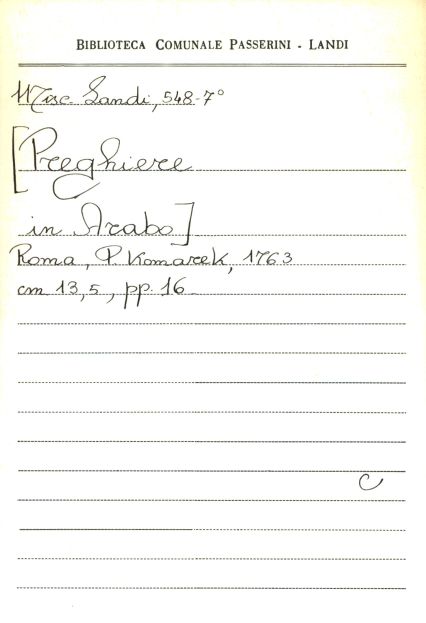 BIBLIOTECA COMUNALE PASSERINI - LANDI
Misc. Landi, 548-7°
[Preghiere
in Arabo]
Roma, P. Komarek, 1763
cm 13,5, pp. 16
C